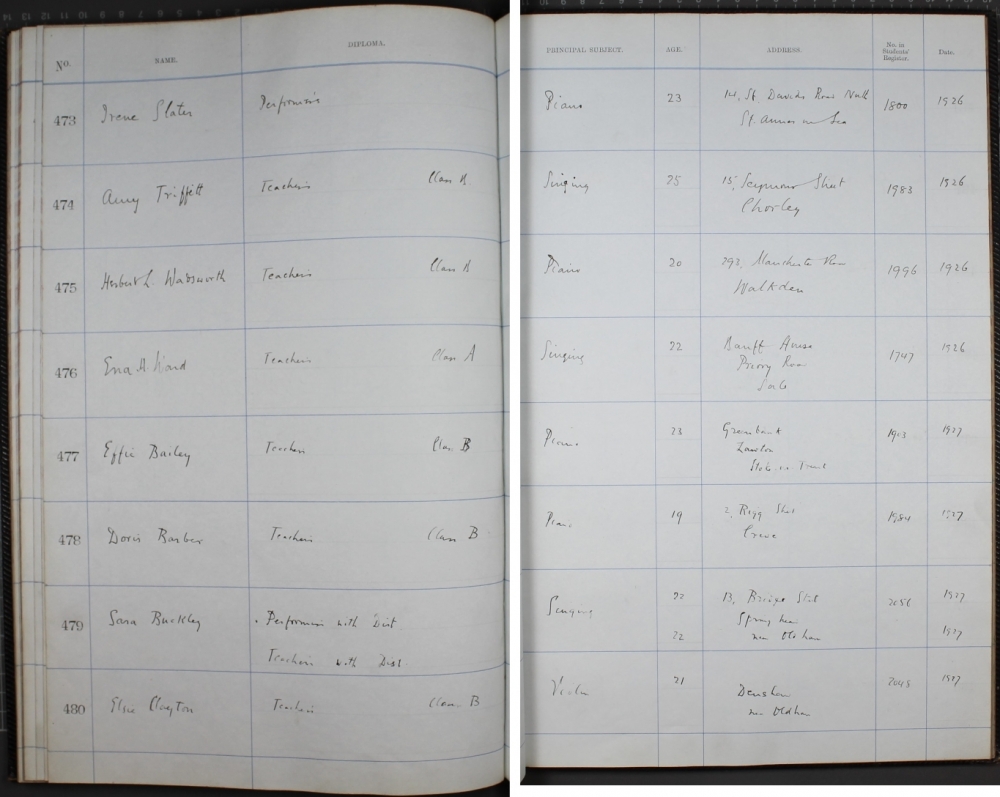 No. NAME. DIPLOMA. PRINCIPAL SUBJECT. AGE. ADDRESS. No. in Students' Register. Date.
473 Irene Slater Performer's Piano 23 14, St Davids Road North 1800 1926
St Annes on Sea
474 Amy Triffitt Teacher's Class A Singing 25 15, Seymour Street 1983 1926
Chorley
475 Herbert L. Wadsworth Teacher's Class A Piano 20 293, Manchester Road 1996 1926
Walkden
476 Ena A. Ward Teacher's Class A Singing 22 Banff House 1747 1926
Priory Road
Sale
477 Effie Bailey Teachers Class B Piano 23 Greenbank 1903 1927
Lawton
Stoke on Trent
478 Doris Barber Teachers Class B Piano 19 2, Rigg Street 1984 1927
Crewe
479 Sara Buckley Performers with Dist. Singing 22 13, Bridge Street 1927
Springhead
Teachers with Dist 22 near Oldham 1927
480 Elsie Clayton Teachers Class B Violin 21 Denshaw 2045 1927
near Oldham